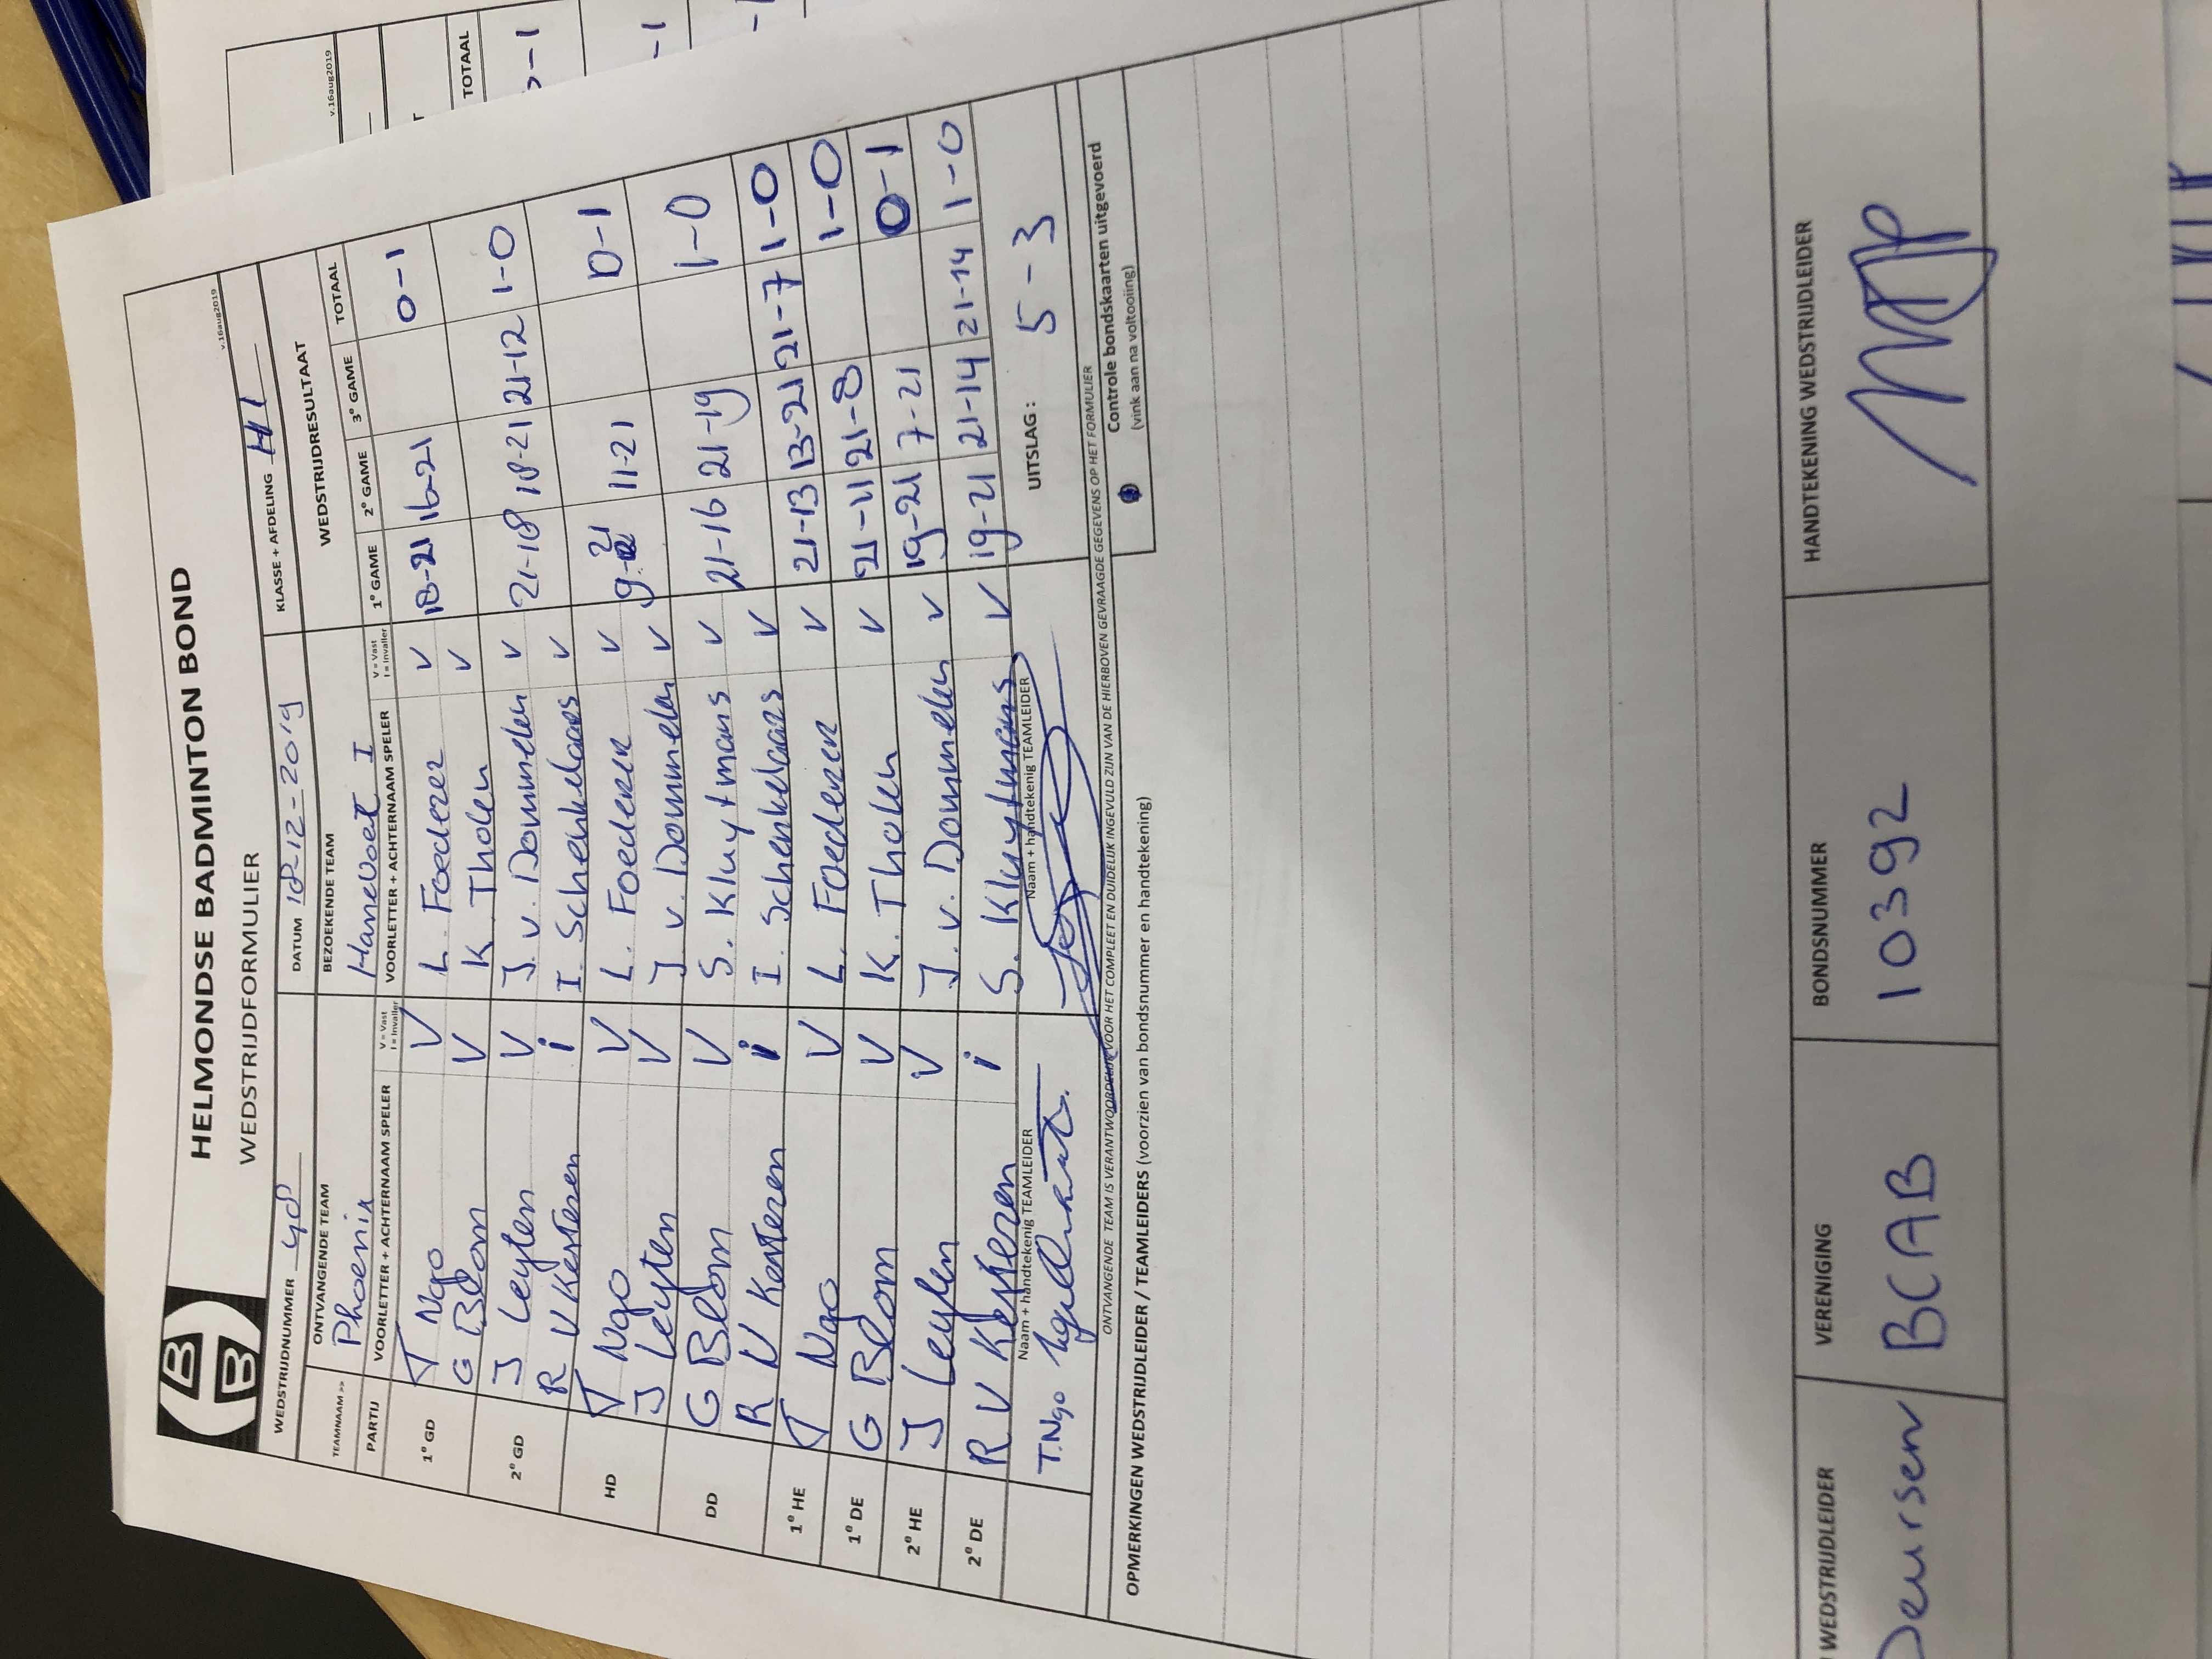 HELMONDSE BADMINTON BOND
WEDSTRIJDFORMULIER
v.16aug2019
WEDSTRIJDNUMMER 408 DATUM 18-12-2019 KLASSE + AFDELING H1
TEAMNAAM >> ONTVANGENDE TEAM BEZOEKENDE TEAM WEDSTRIJDRESULTAAT
Phoenix HaneVoet I
PARTIJ VOORLETTER + ACHTERNAAM SPELER V = Vast I = Invaller VOORLETTER + ACHTERNAAM SPELER V = Vast I = Invaller 1e GAME 2e GAME 3e GAME TOTAAL
1e GD T Ngo V L. Foederer V 18-21 16-21 0-1
G Blom V K. Tholen V
2e GD J Leyten V J. v. Dommelen V 21-18 18-21 21-12 1-0
R V Kesteren i I. Schenkelaars V
HD T Ngo V L. Foederer V 9-21 11-21 0-1
J Leyten V J v. Dommelen V
DD G Blom V S. Kluytmans V 21-16 21-19 1-0
R V Kesteren i I. Schenkelaars V
1e HE T Ngo V L. Foederer V 21-13 13-21 21-7 1-0
1e DE G Blom V K. Tholen V 21-11 21-8 1-0
2e HE J Leyten V J. v. Dommelen V 19-21 7-21 0-1
2e DE R V Kesteren i S. Kluytmans V 19-21 21-14 21-14 1-0
Naam + handtekenig TEAMLEIDER Naam + handtekenig TEAMLEIDER UITSLAG : 5-3
T.Ngo
ONTVANGENDE TEAM IS VERANTWOORDELIJK VOOR HET COMPLEET EN DUIDELIJK INGEVULD ZIJN VAN DE HIERBOVEN GEVRAAGDE GEGEVENS OP HET FORMULIER
Controle bondskaarten uitgevoerd
(vink aan na voltooiing)
OPMERKINGEN WEDSTRIJDLEIDER / TEAMLEIDERS (voorzien van bondsnummer en handtekening)
WEDSTRIJDLEIDER VERENIGING BONDSNUMMER HANDTEKENING WEDSTRIJDLEIDER
Deursen BCAB 10392
v.16aug2019
TOTAAL
-1
-1
-1